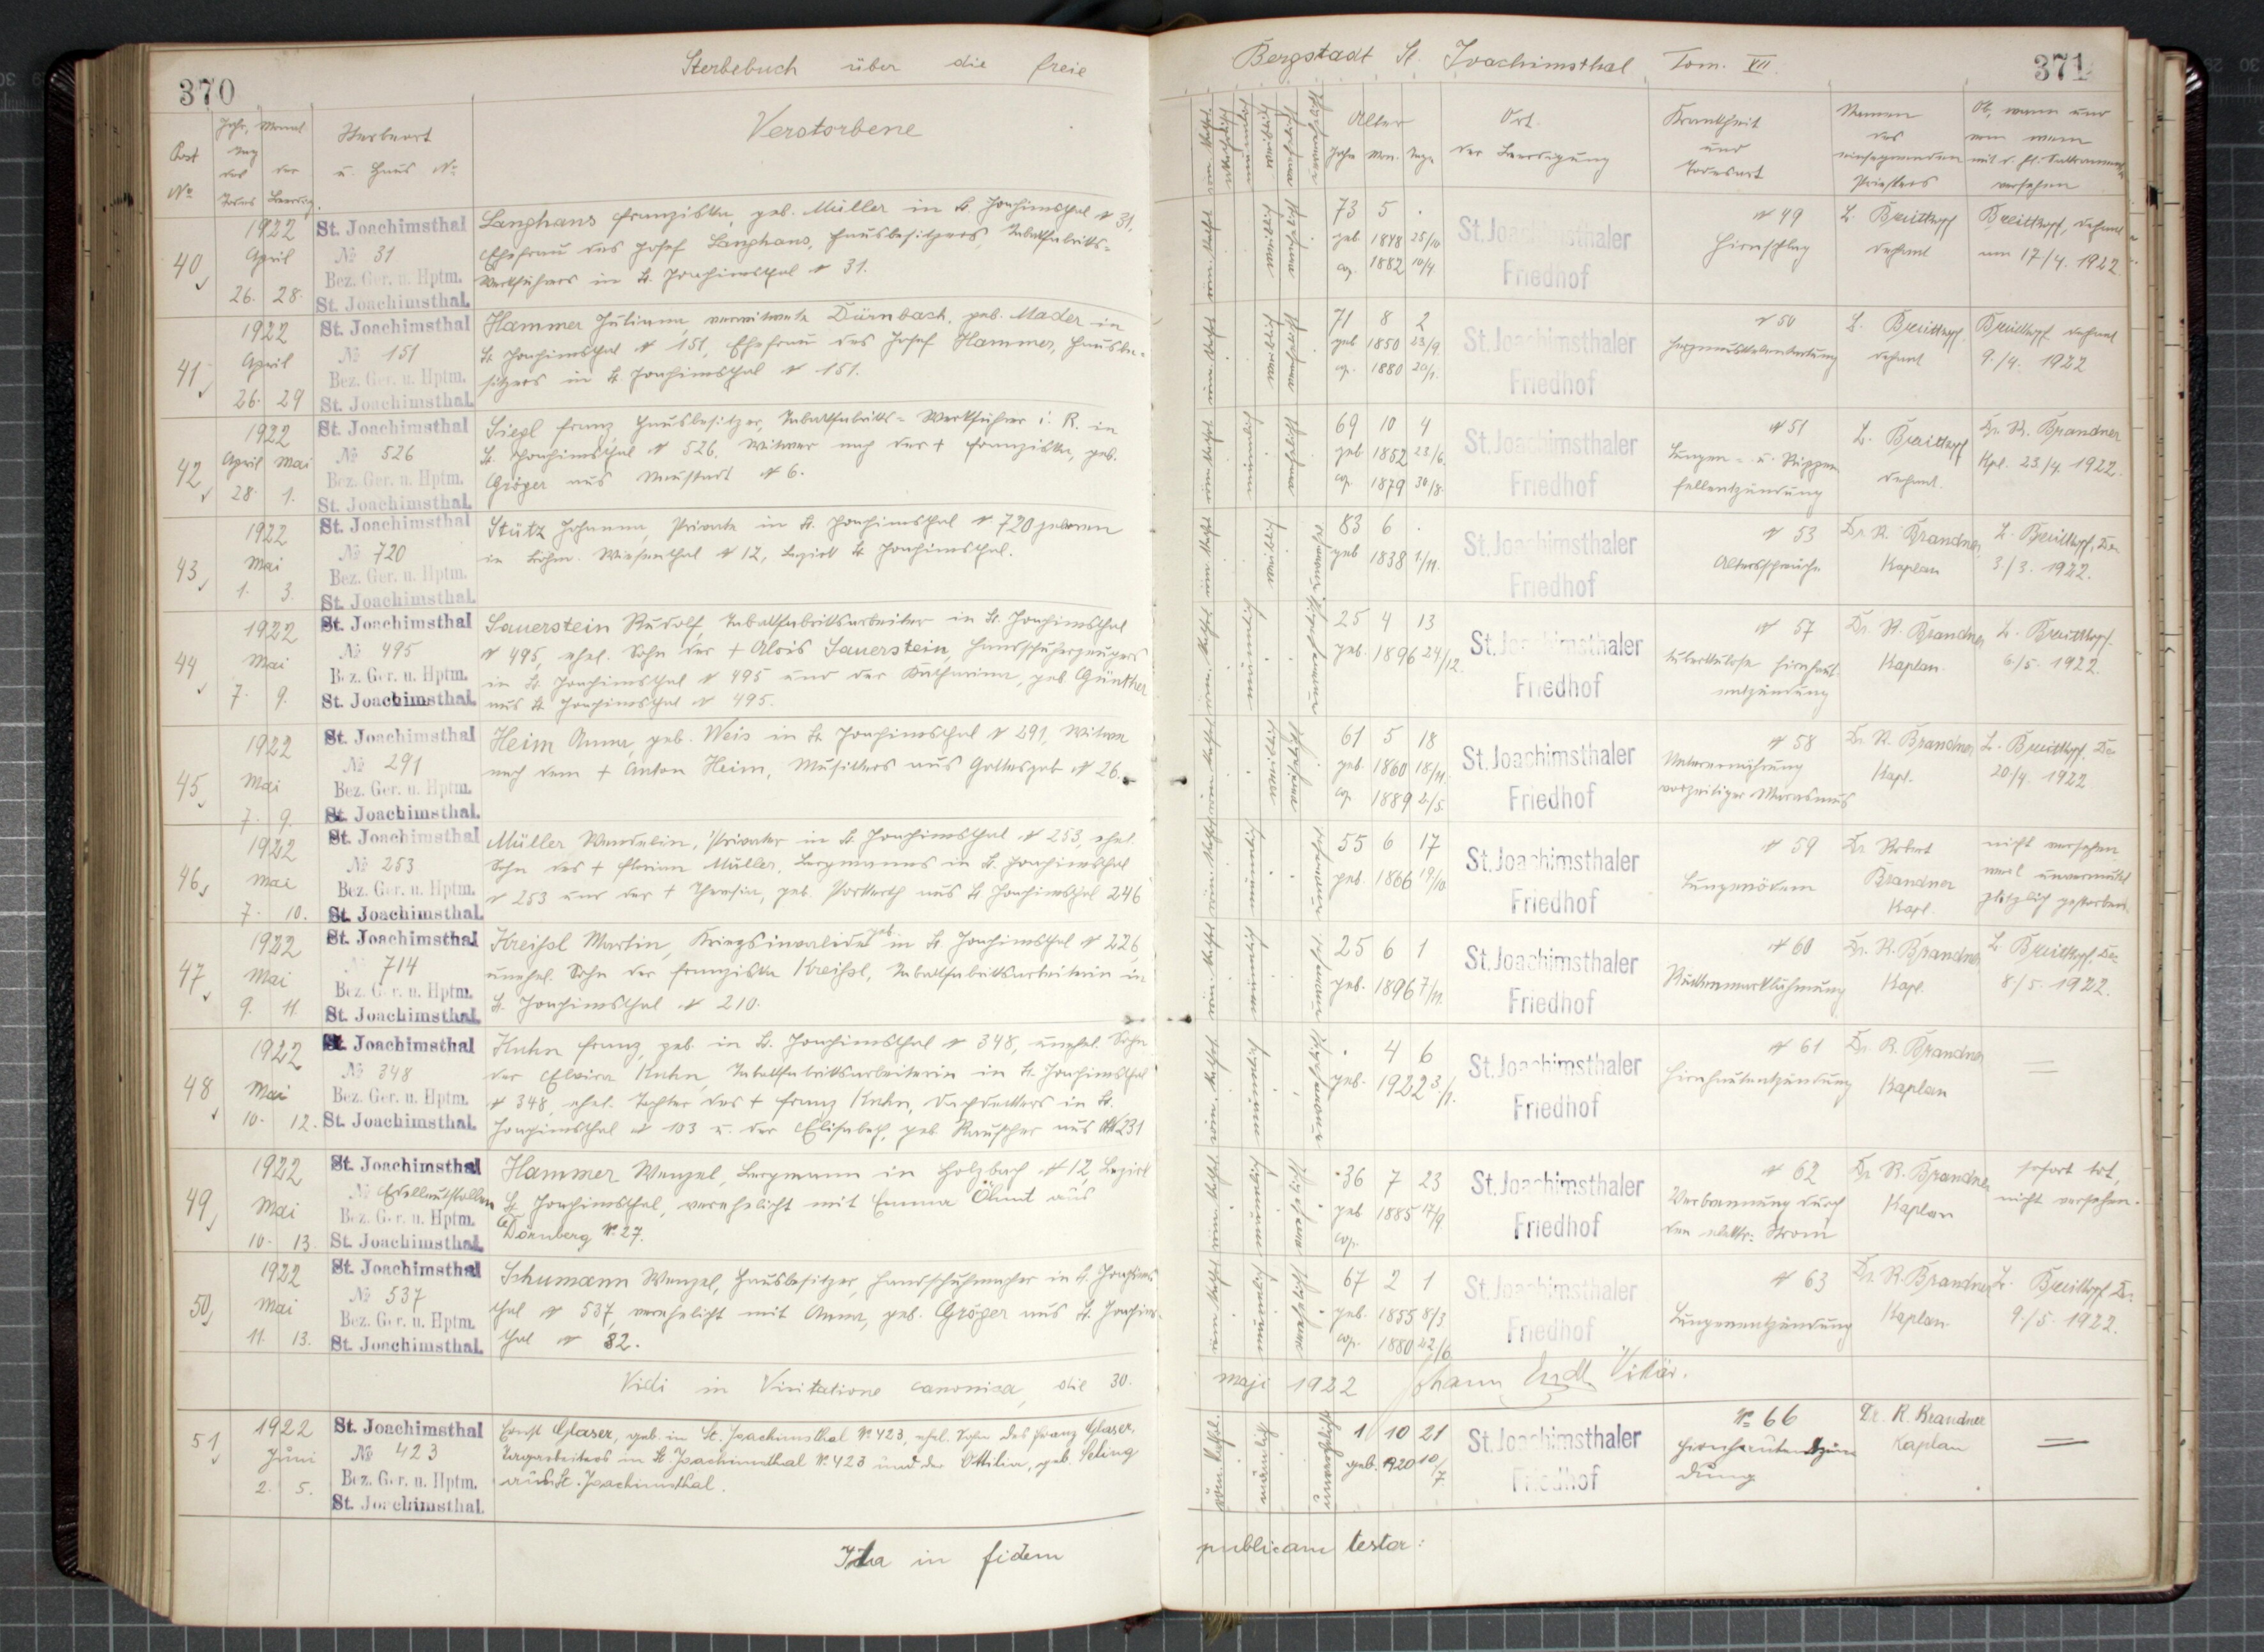 370
Sterbebuch über die freie
Post
No
Jahr, Monat
Tag
des
der
Todes
Beerdig.
Sterbeort
u. Haus No
Verstorbene
40
1922
April
26. 28.
St. Joachimsthal
No 31
Bez. Ger. u. Hptm.
St. Joachimsthal.
Langhans Franziska, geb. Müller in St. Joachimsthal No 31,
Ehefrau des Josef Langhans, Hausbesitzers, Tabakfabriks-
Werkführers in St. Joachimsthal No 31.
41
1922
April
26. 29
St. Joachimsthal
No 151
Bez. Ger. u. Hptm.
St. Joachimsthal.
Hammer Juliana, verwitwete Dürnbach, geb. Mader in
St. Joachimsthal No 151, Ehefrau des Josef Hammer, Hausbe-
sitzers in St. Joachimsthal No 151.
42
1922
April Mai
28. 1.
St. Joachimsthal
No 526
Bez. Ger. u. Hptm.
St. Joachimsthal.
Siegl Franz, Hausbesitzer, Tabakfabriks-Werkführer i. R. in
St. Joachimsthal No 526, Witwer nach der + Franziska, geb.
Gröger aus Neustadt No 6.
43
1922
Mai
1. 3.
St. Joachimsthal
No 720
Bez. Ger. u. Hptm.
St. Joachimsthal.
Stütz Johanna, Private in St. Joachimsthal No 720 geboren
in Böhm. Wiesenthal No 12, Bezirk St. Joachimsthal.
44
1922
Mai
7. 9.
St. Joachimsthal
No 495
Bez. Ger. u. Hptm.
St. Joachimsthal.
Sauerstein Rudolf, Tabakfabriksarbeiter in St. Joachimsthal
No 495, ehel. Sohn des + Alois Sauerstein, Handschuherzeugers
in St. Joachimsthal No 495 und der Katharina, geb. Günther
aus St. Joachimsthal No 495.
45
1922
Mai
7. 9.
St. Joachimsthal
No 291
Bez. Ger. u. Hptm.
St. Joachimsthal.
Heim Anna, geb. Weis in St. Joachimsthal No 291, Witwe
nach dem + Anton Heim, Musikers aus Gottesgab No 26.
46
1922
Mai
7. 10.
St. Joachimsthal
No 253
Bez. Ger. u. Hptm.
St. Joachimsthal.
Müller Wendelin, Privater in St. Joachimsthal No 253, ehel.
Sohn des + Florian Müller, Bergmannes in St. Joachimsthal
No 253 und der + Theresia, geb. Porkerth aus St. Joachimsthal 246
47
1922
Mai
9. 11.
St. Joachimsthal
714
Bez. Ger. u. Hptm.
St. Joachimsthal.
Kreißl Martin, Kriegsinvalide, geb. in St. Joachimsthal No 226,
unehel. Sohn der Franziska Kreißl, Tabakfabriksarbeiterin in
St. Joachimsthal No 210.
48
1922
Mai
10. 12.
St. Joachimsthal
No 348
Bez. Ger. u. Hptm.
St. Joachimsthal.
Kuhn Franz, geb. in St. Joachimsthal No 348, unehel. Sohn
der Elvira Kuhn, Tabakfabriksarbeiterin in St. Joachimsthal
No 348, ehel. Tochter des + Franz Kuhn, Dachdeckers in St.
Joachimsthal No 103 u. der Elisabeth, geb. Rauscher aus No 231
49
1922
Mai
10. 13.
St. Joachimsthal
No Edelleutstollen
Bez. Ger. u. Hptm.
St. Joachimsthal.
Hammer Wenzel, Bergmann in Holzbach No 12, Bezirk
St. Joachimsthal, verehelicht mit Emma Öhmt aus
Dörnberg No 27.
50
1922
Mai
11. 13.
St. Joachimsthal
No 537
Bez. Ger. u. Hptm.
St. Joachimsthal.
Schumann Wenzel, Hausbesitzer, Handschuhmacher in St. Joachims-
thal No 537, verehelicht mit Anna, geb. Gröger aus St. Joachims-
thal No 82.
Vidi in Visitatione canonica, die 30.
51
1922
Juni
2. 5.
St. Joachimsthal
No 423
Bez. Ger. u. Hptm.
St. Joachimsthal.
Ernst Glaser, geb. in St. Joachimsthal No 423, ehel. Sohn des Franz Glaser,
Bergarbeiters in St. Joachimsthal No 423 und der Ottilia, geb. Seling
aus St. Joachimsthal.
Ita in fidem
Bergstadt St. Joachimsthal Tom. VII.
371
Alter
Jahr Mon. Tage
Ort
der Beerdigung
Krankheit
und
Todesart
Namen
des
einsegnenden
Priesters
Ob, wann und
von wem
mit d. hl. Sakramenten
versehen
73 5 .
geb. 1848 25/10
cop. 1882 10/4
St. Joachimsthaler
Friedhof
No 49
Hirnschlag
L. Breitkopf
Dechant
Breitkopf, Dechant
am 17/4. 1922.
71 8 2
geb 1850 23/9.
cop. 1880 20/1.
St. Joachimsthaler
Friedhof
No 50
Herzmuskelentartung
L. Breitkopf,
Dechant
Breitkopf Dechant
9./4. 1922
69 10 4
geb 1852 23/6.
cop. 1879 30/8.
St. Joachimsthaler
Friedhof
No 51
Lungen- u. Rippen-
fellentzündung
L. Breitkopf
Dechant.
Dr. R. Brandner
Kpl. 23./4. 1922.
83 6 .
geb 1838 1/11.
St. Joachimsthaler
Friedhof
No 53
Altersschwäche
Dr. R. Brandner,
Kaplan
L. Breitkopf, De.
3./3. 1922.
25 4 13
geb. 1896 24/12.
St. Joachimsthaler
Friedhof
No 57
tuberkulose Hirnhaut-
entzündung
Dr. R. Brandner
Kaplan.
L. Breitkopf.
6./5. 1922.
61 5 18
geb. 1860 18/11.
cop. 1889 2/5.
St. Joachimsthaler
Friedhof
No 58
Unterernährung
vorzeitiger Marasmus
Dr. R. Brandner
Kapl.
L. Breitkopf. De.
20./4 1922
55 6 17
geb. 1866 19/10
St. Joachimsthaler
Friedhof
No 59
Lungenödem
Dr. Robert
Brandner
Kapl.
nicht versehen
weil unvermutet
plötzlich gestorben.
25 6 1
geb. 1896 7/11.
St. Joachimsthaler
Friedhof
No 60
Rückenmarklähmung
Dr. R. Brandner
Kapl.
L. Breitkopf. De.
8/5. 1922.
. 4 6
geb. 1922 3/1.
St. Joachimsthaler
Friedhof
No 61
Hirnhautentzündung
Dr. R. Brandner
Kaplan
36 7 23
geb 1885 17/9
cop.
St. Joachimsthaler
Friedhof
No 62
Verbrennung durch
den elektr. Strom
Dr. R. Brandner
Kaplan
sofort tot,
nicht versehen.
67 2 1
geb. 1855 8/3
cop. 1880 22/6
St. Joachimsthaler
Friedhof
No 63
Lungenentzündung
Dr. R. Brandner
Kaplan
L. Breitkopf De.
9./5. 1922.
maji 1922 Johann Endt Vikär.
1 10 21
geb. 1920 10/7.
St. Joachimsthaler
Friedhof
No 66
Hirnhautentzün
dung
Dr. R. Brandner
Kaplan
publicam testor: